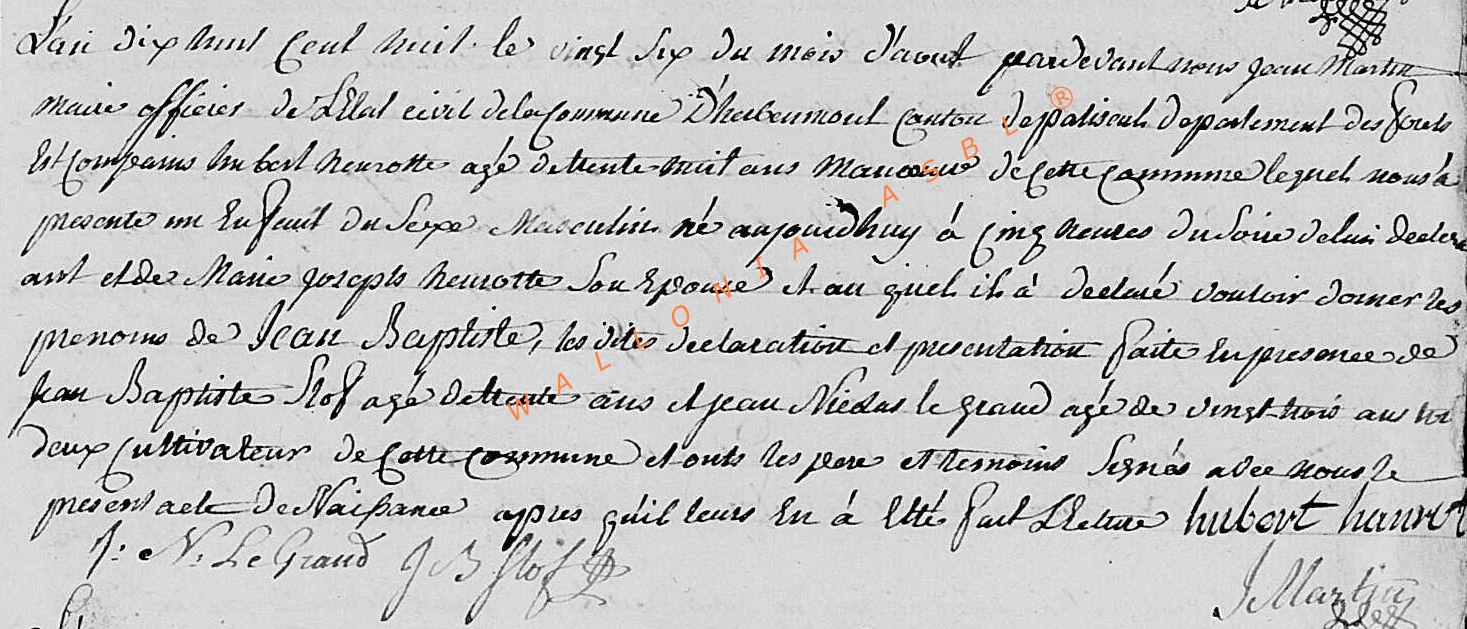 L'an dix huit cent huit le vingt six du mois d'aout pardevant nous jean Martin
Maire officier de L'Etat civil dela Commune D'herbeumont canton de paliseul departement des forets
Est comparus hubert heurotte agé de trente huit ans Manoeuvre de Cette commune lequel nous à
presente un Enfant du Sexe Masculin né aujourdhuy à cinq heures du Soire de lui declar
ant et de Marie joseph heurotte Son Epouse et au quel il à declaré vouloir donner les
prenoms de Jean Baptiste, les dites declaration et presentation faite En presence de
jean Baptiste Slof agé de trente ans et jean Nicolas le grand agé de vingt trois ans
deux cultivateur de Cette commune et onts les pere et temoins Signés avec nous le
present acte de Naissance apres qu'il leurs En à Etté fait Lecture hubert haurot
J: N. Le Grand J B Slof
J Martin
WALLONIA ASBL ®